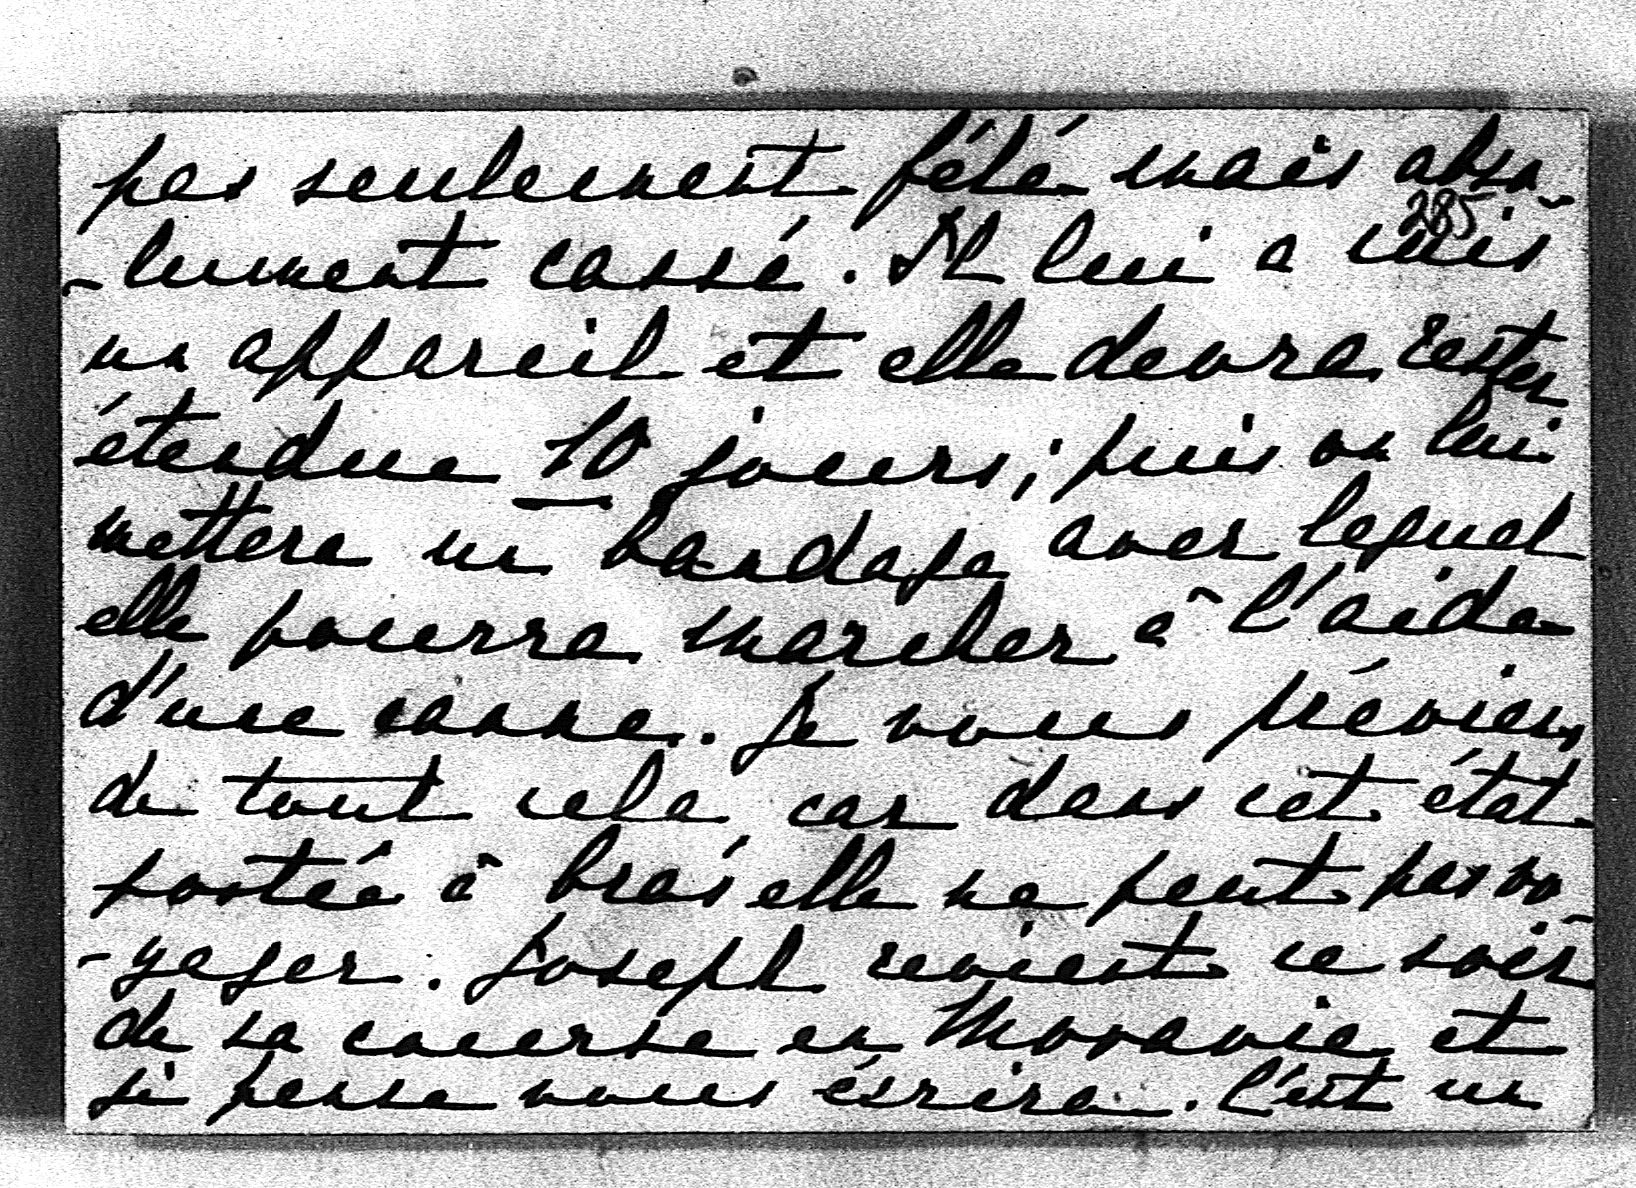 pas seulement fêlé mais abso
285
-lument cassé. Il lui a mis
un appareil et elle devra rester
étendue 10 jours; puis on lui
mettera un bandage avec lequel
elle pourra marcher à l'aide
d'une canne. Je vous préviens
de tout cela, car dans cet état
portée à bras elle ne peut pas vo
-yager. Joseph revient ce soir
de sa course en Moravie et
je pense vous écrira. C'est un